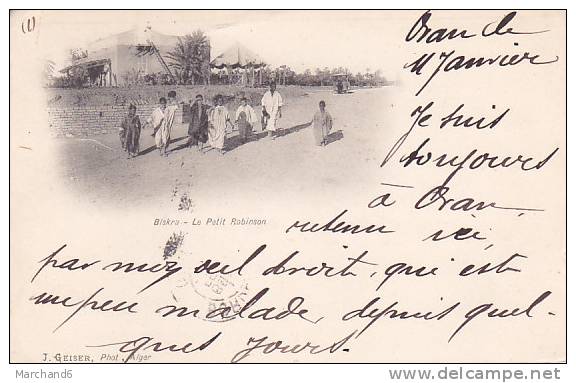 (1)
Oran le
11 Janvier
Je suis
toujours
à Oran,
retenu ici,
par mon œil droit, qui est
un peu malade, depuis quel-
ques jours.
Biskra - Le Petit Robinson
J. GEISER, Phot. Alger
Marchand6
© delcampe.net